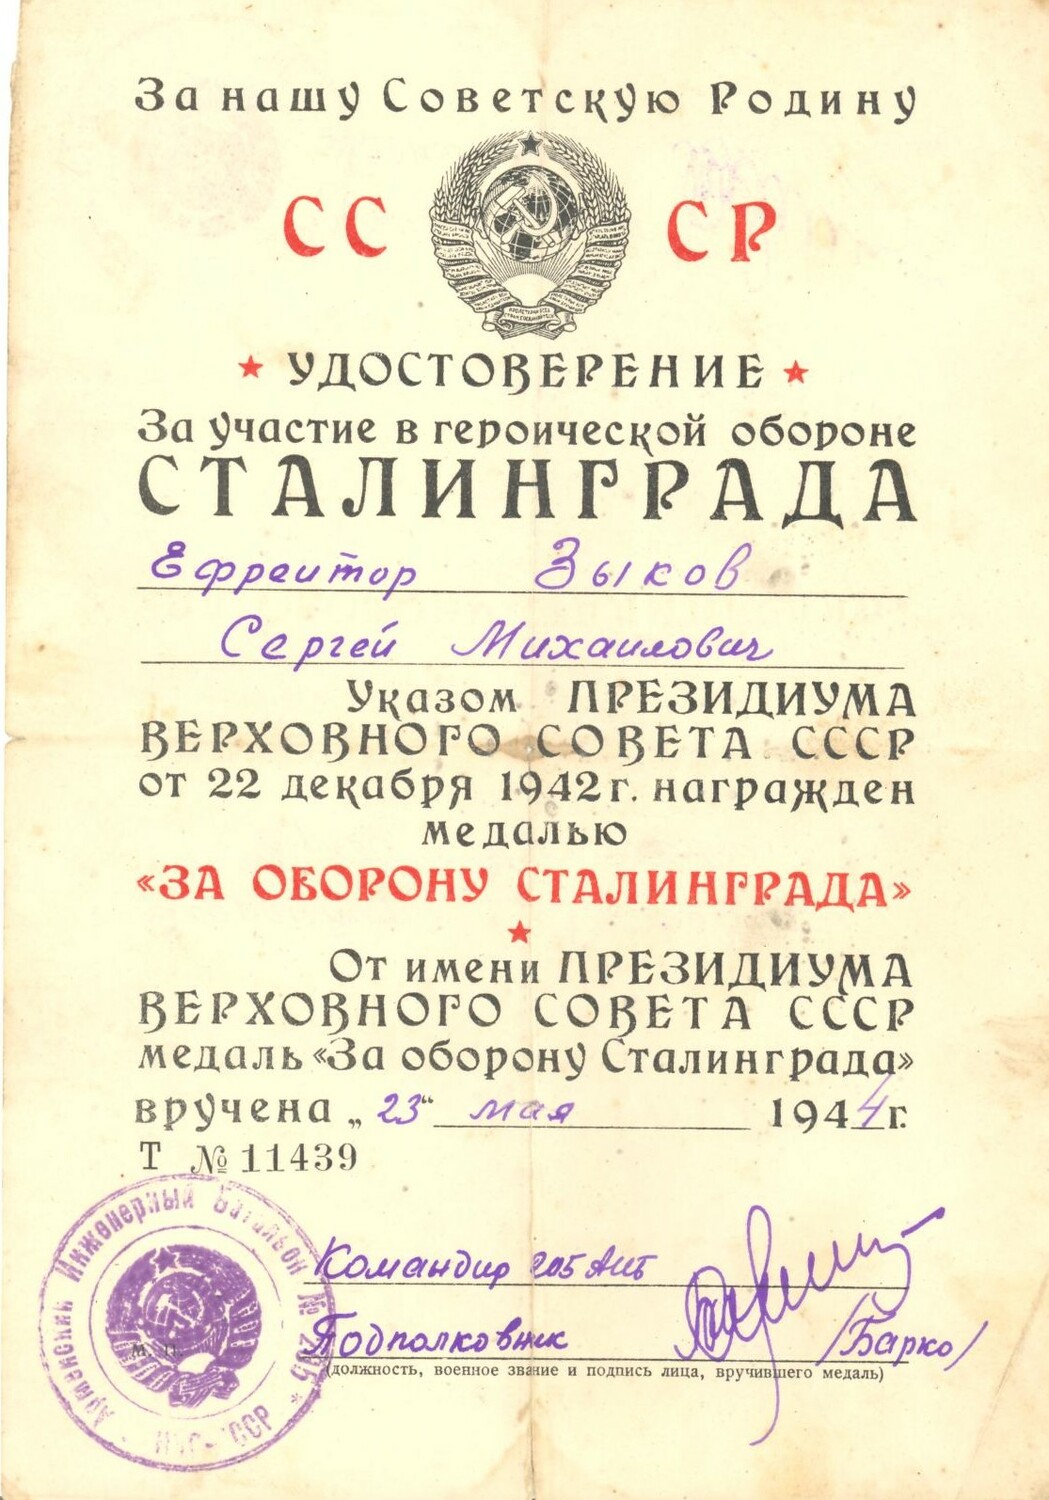 За нашу Советскую Родину
СССР
УДОСТОВЕРЕНИЕ
За участие в героической обороне
СТАЛИНГРАДА
Ефрейтор Зыков
Сергей Михайлович
Указом ПРЕЗИДИУМА
ВЕРХОВНОГО СОВЕТА СССР
от 22 декабря 1942 г. награжден
медалью
«ЗА ОБОРОНУ СТАЛИНГРАДА»
От имени ПРЕЗИДИУМА
ВЕРХОВНОГО СОВЕТА СССР
медаль «За оборону Сталинграда»
вручена „23“ мая 1944 г.
Т № 11439
Армейский Инженерный Батальон № 205
Командир 205 АИБ
Подполковник /Барко/
М. П.
(должность, военное звание и подпись лица, вручившего медаль)